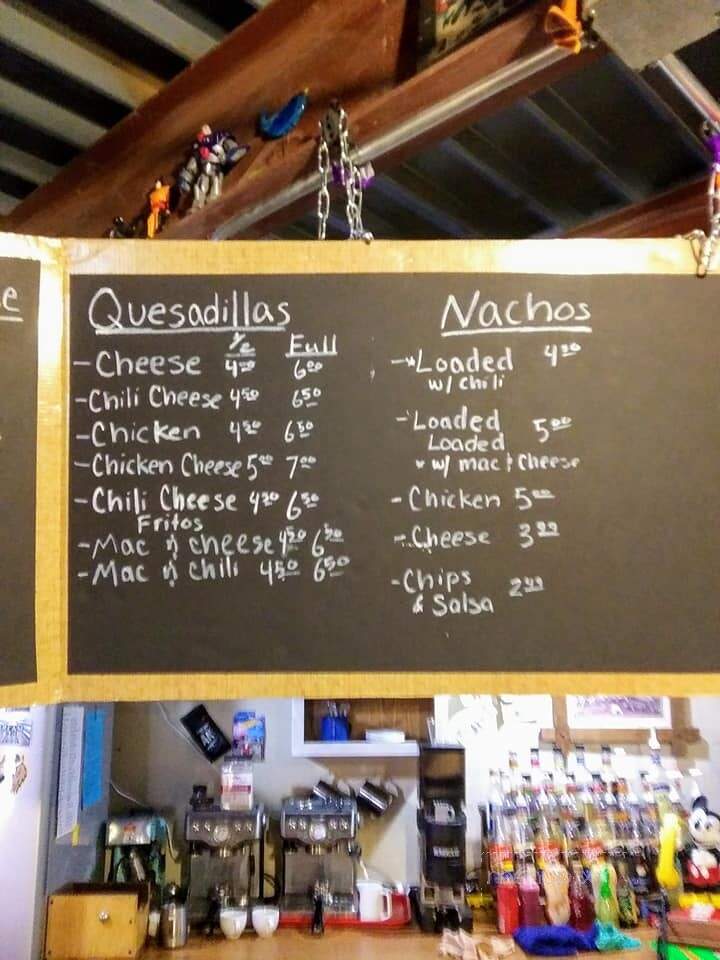 e
Quesadillas
1/2 Full
- Cheese 6⁰⁰
- Chili Cheese 4⁵⁰ 6⁵⁰
- Chicken 4⁵⁰ 6⁵⁰
- Chicken Cheese 5⁰⁰ 7⁰⁰
- Chili Cheese 6⁵⁰
Fritos
- Mac n' cheese 4⁵⁰ 6⁵⁰
- Mac n' Chili 4⁵⁰ 6⁵⁰
Nachos
- Loaded
w/ Chili
- Loaded 5⁰⁰
Loaded
w/ mac & Cheese
- Chicken 5⁰⁰
- Cheese
- Chips
& Salsa